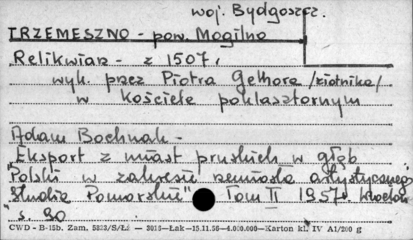 woj. Bydgoszcz.
TRZEMESZNO - pow. Mogilno
Relikwiarz - z 1507 r.
wyk. przez Piotra Gelhora /złotnika/
w kościele poklasztornym
Adam Bochnak -
"Eksport z miast pruskich w głąb
Polski w zakresie rzemiosła artystycznego
"Studia Pomorskie" Tom II 1957 r. Wrocław
s. 90
CWD - B-15b. Zam. 5223/S/Łź — 3015—Łak—15.11.56—4.000.000—Karton kl. IV A1/200 g